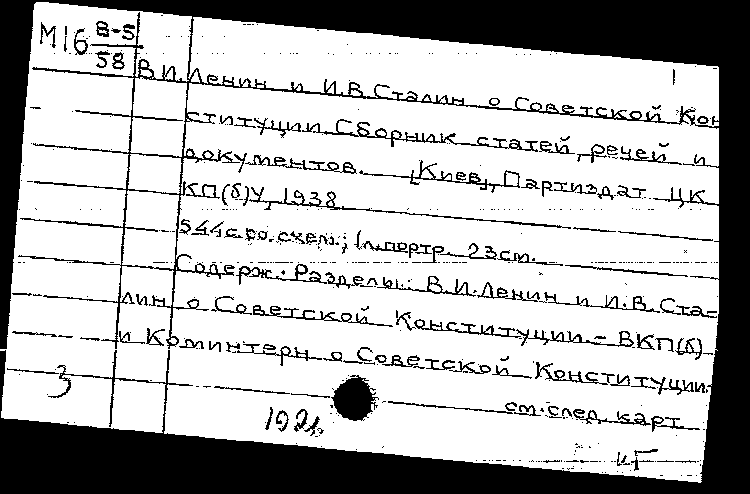 М16 В-5
58
В.И.Ленин и И.В.Сталин о Советской Кон
ституции. Сборник статей, речей и
документов. [Киев], Партиздат ЦК
КП(б)У, 1938.
544с. со схем.; 1л.портр. 23см.
Содерж.: Разделы: В.И.Ленин и И.В.Ста=
лин о Советской Конституции.- ВКП(б)
и Коминтерн о Советской Конституции.
см.след. карт.
3